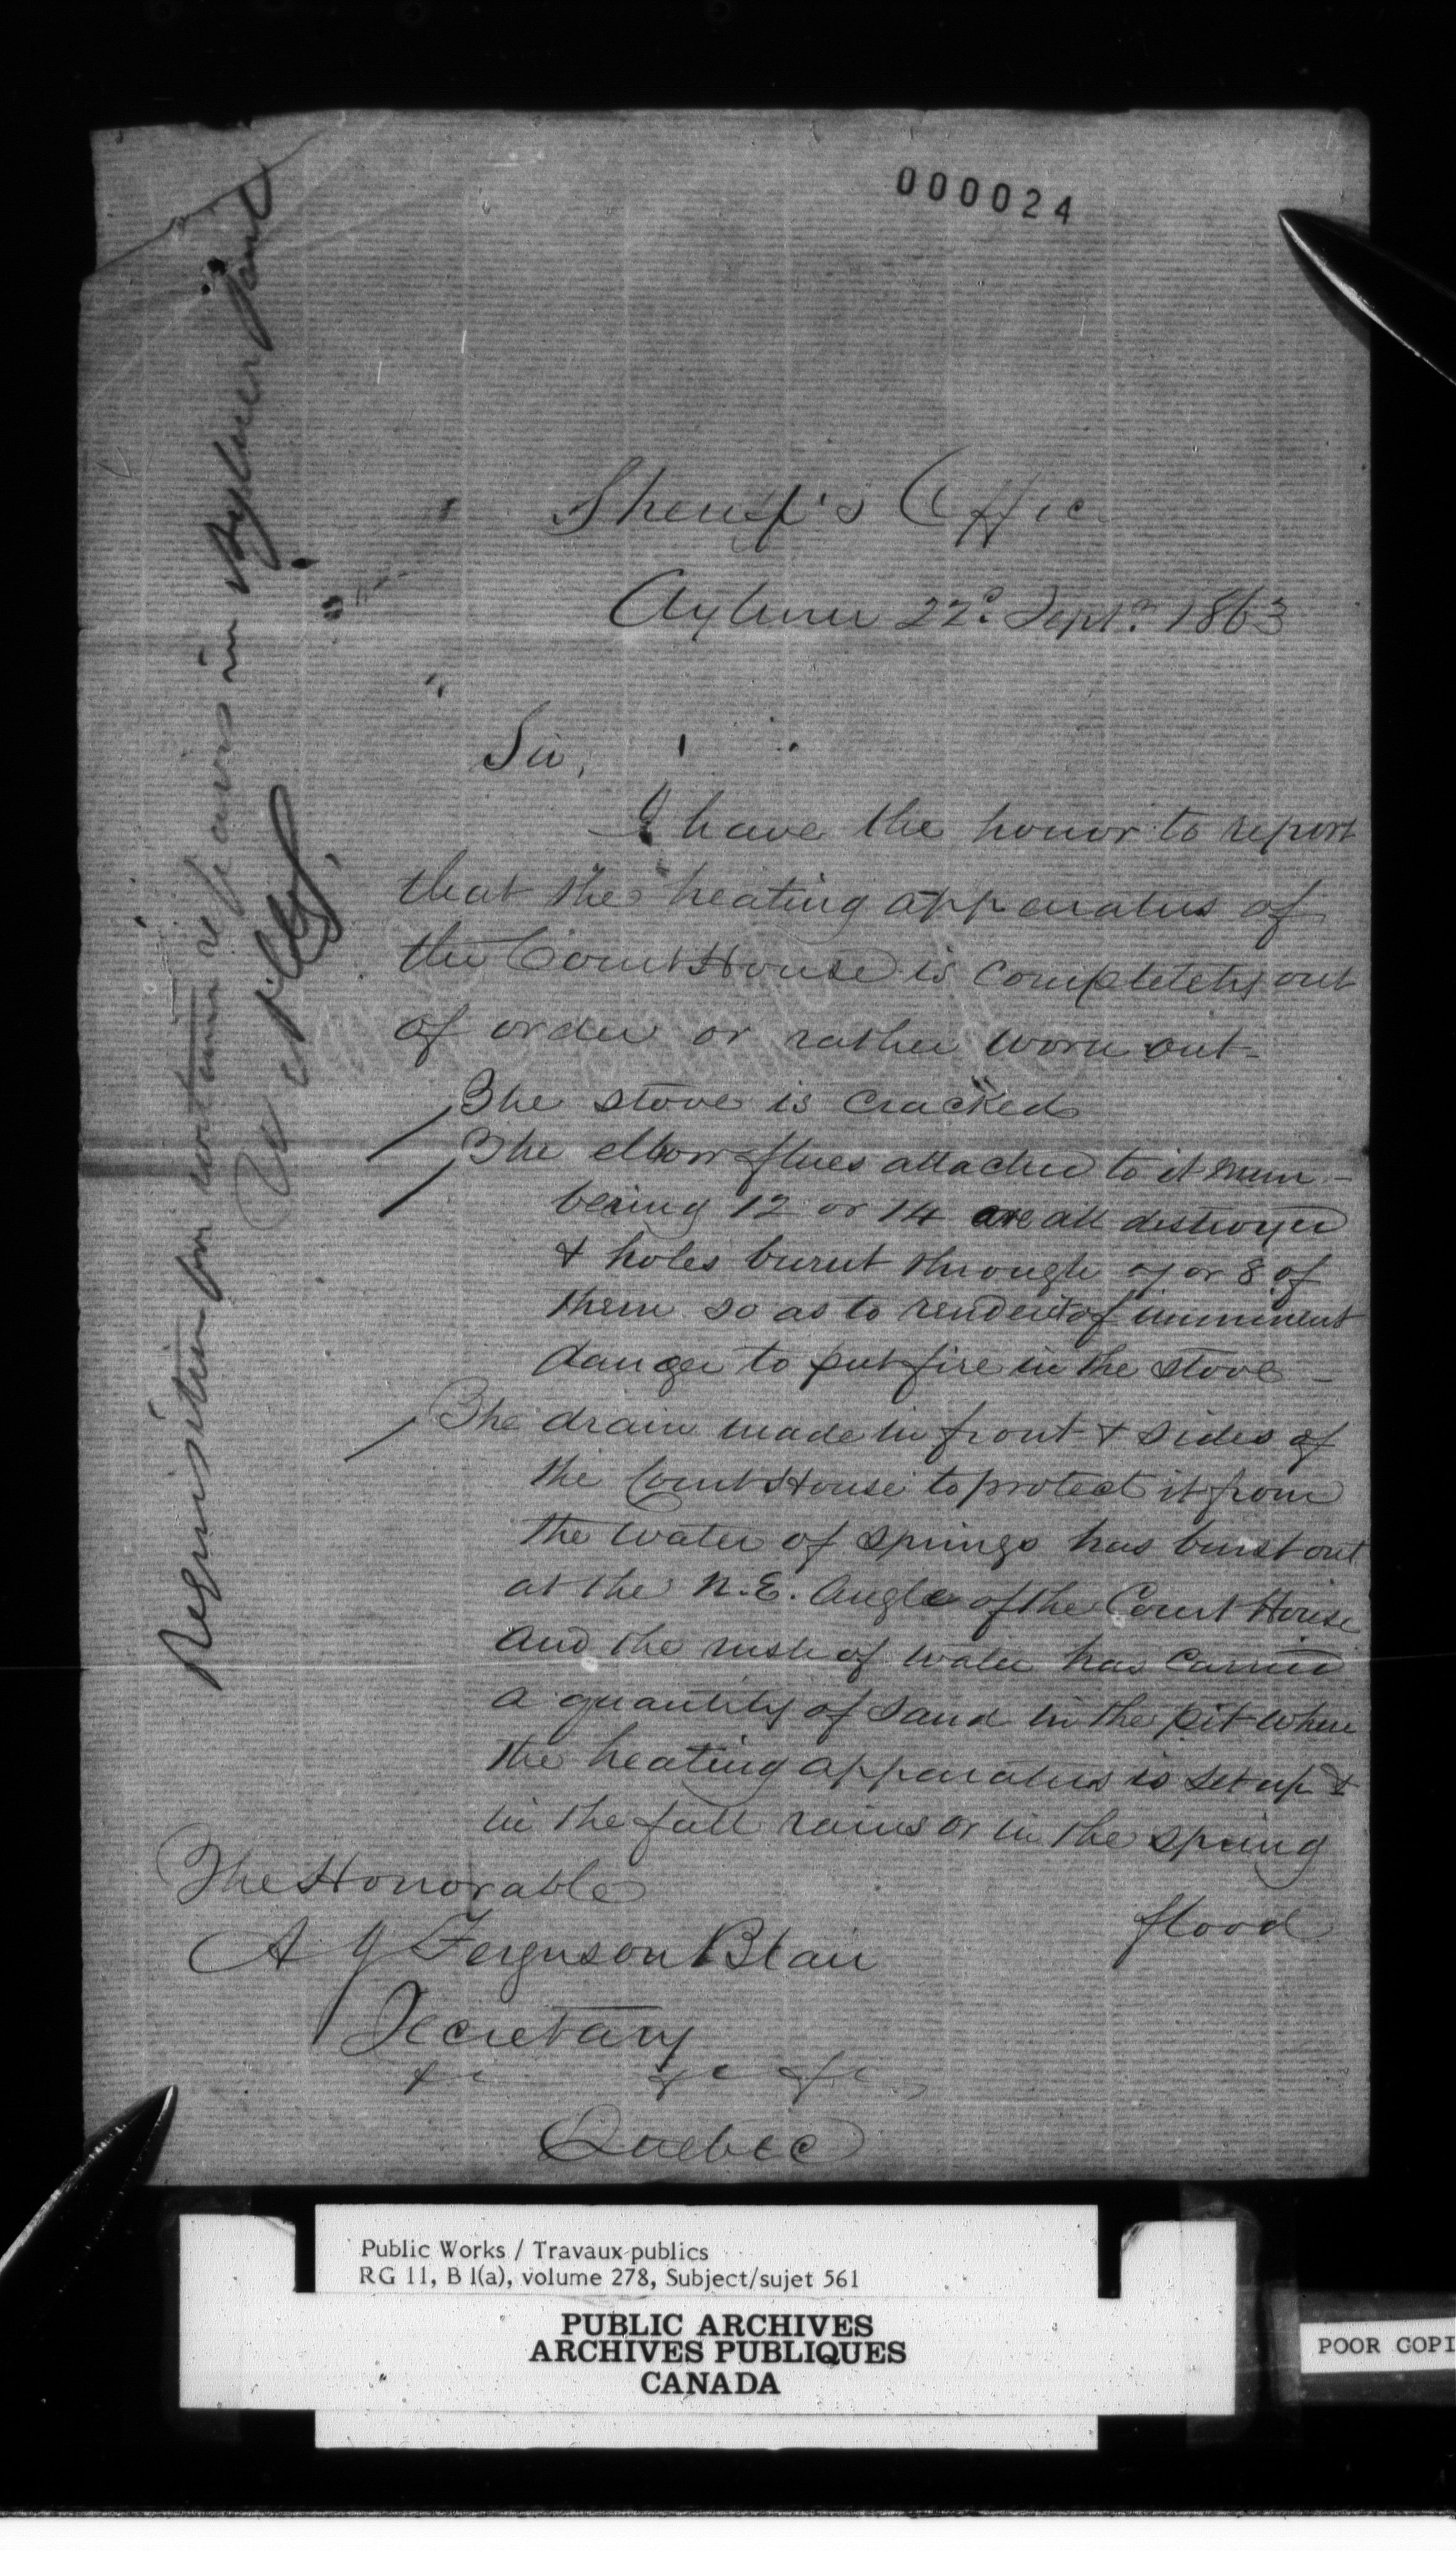 000024
Sheriff's Office
Aylmer 22d. Septr. 1863
Sir,
I have the honor to report
that the heating apparatus of
the Court House is completely out
of order or rather worn out -
The stove is cracked
The elbow flues attached to it num-
bering 12 or 14 are all destroyed
& holes burnt through 7 or 8 of
them so as to render it of imminent
danger to put fire in the stove -
The drain made in front & sides of
the Court House to protect it from
the water of springs has burst out
at the N.E. angle of the Court House
and the rush of water has carried
a quantity of sand in the pit where
the heating apparatus is set up &
in the fall rains or in the spring
flood
The Honorable
A J Ferguson Blair
Secretary
&c &c &c
Quebec
Requisition for certain repairs in Aylmer Gaol
Public Works / Travaux publics
RG 11, B 1(a), volume 278, Subject/sujet 561
PUBLIC ARCHIVES
ARCHIVES PUBLIQUES
CANADA
POOR COPI